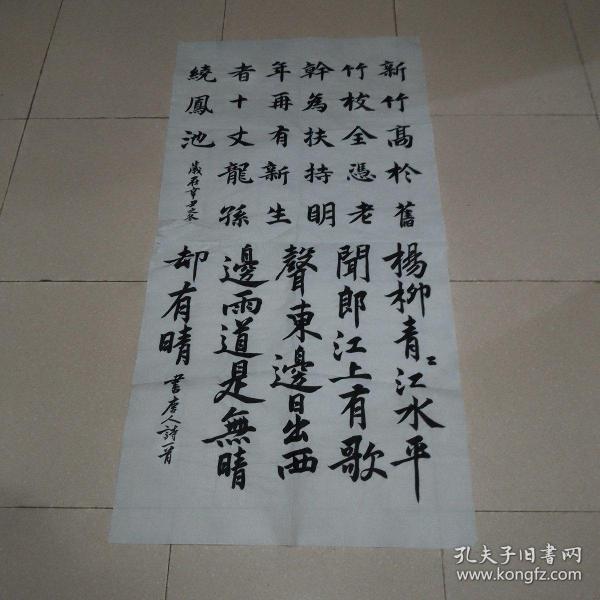 新竹高於舊
竹枝全憑老
幹為扶持明
年再有新生
者十丈龍孫
繞鳳池
歲在辛丑之
楊柳青〻江水平
聞郎江上有歌
聲東邊日出西
邊雨道是無晴
却有晴
書唐人詩一首
孔夫子旧书网
www.kongfz.com